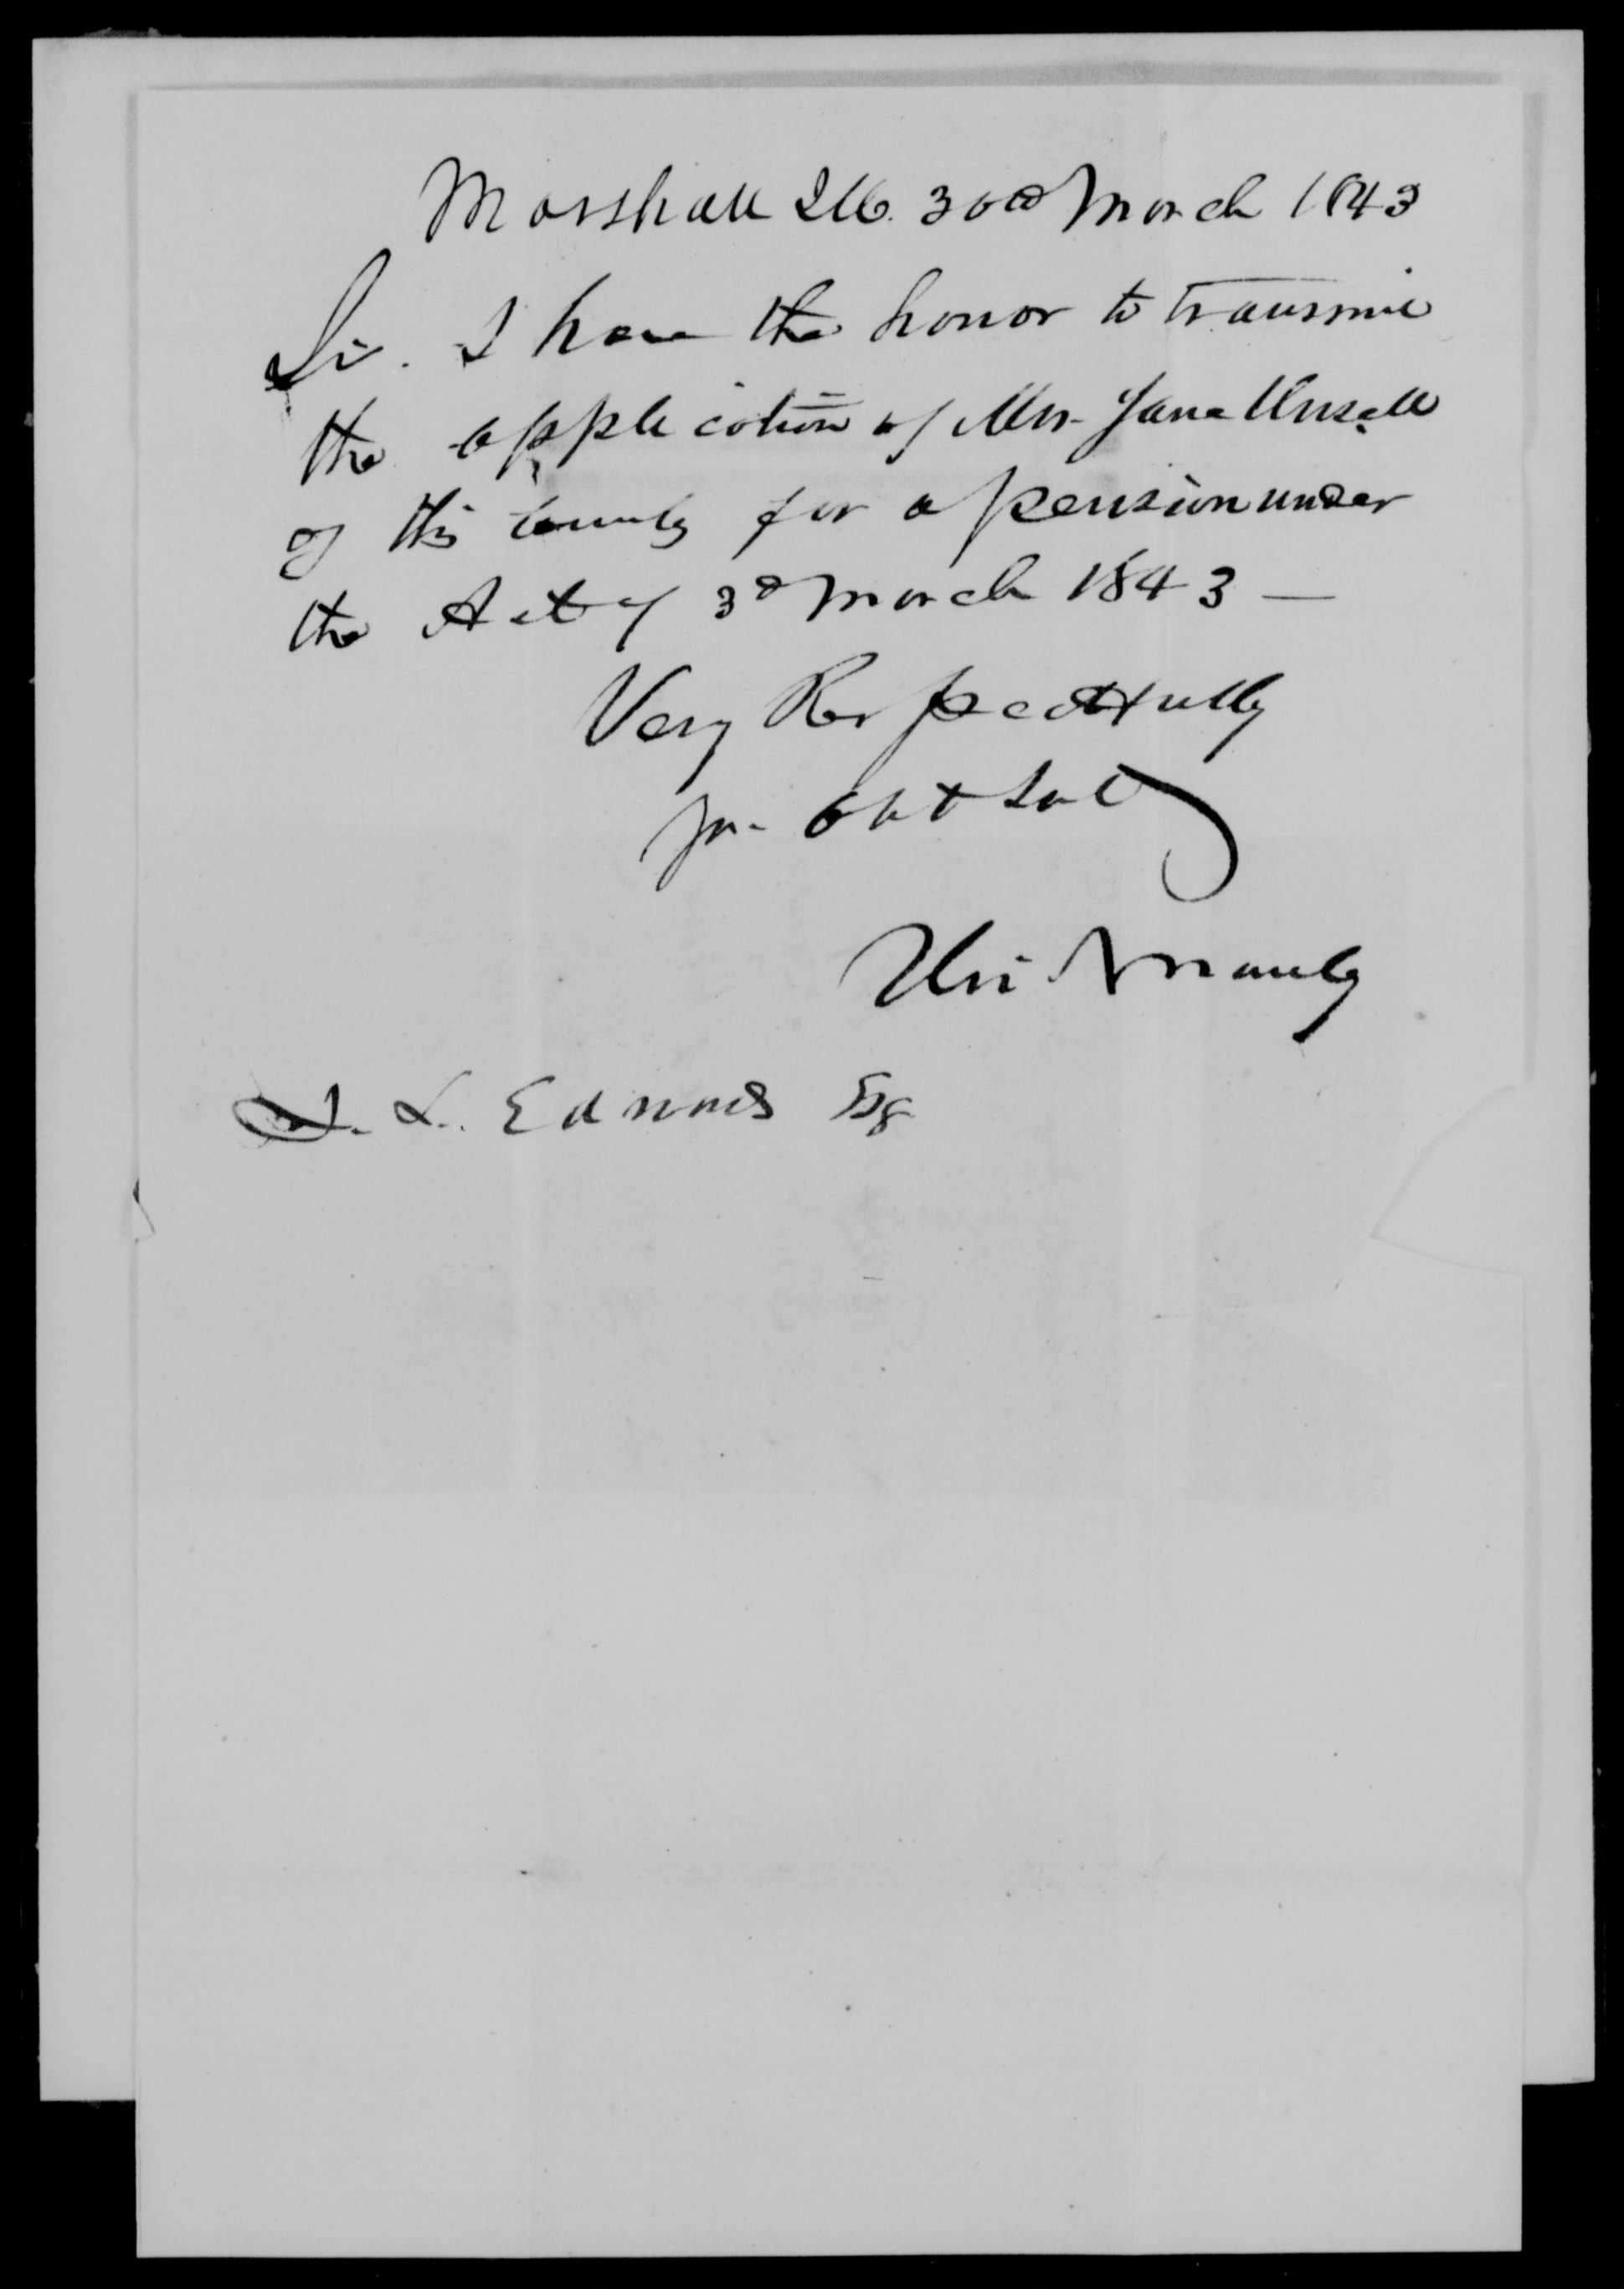 Marshall Ill. 30th March 1843
Sir. I have the honor to transmit
the application of Mrs. Jane
of this County for a pension under
the Act of 3d March 1843 —
Very Respectfully
yr. Obt Svt
Uri Manly
J. L. Edwards Esq